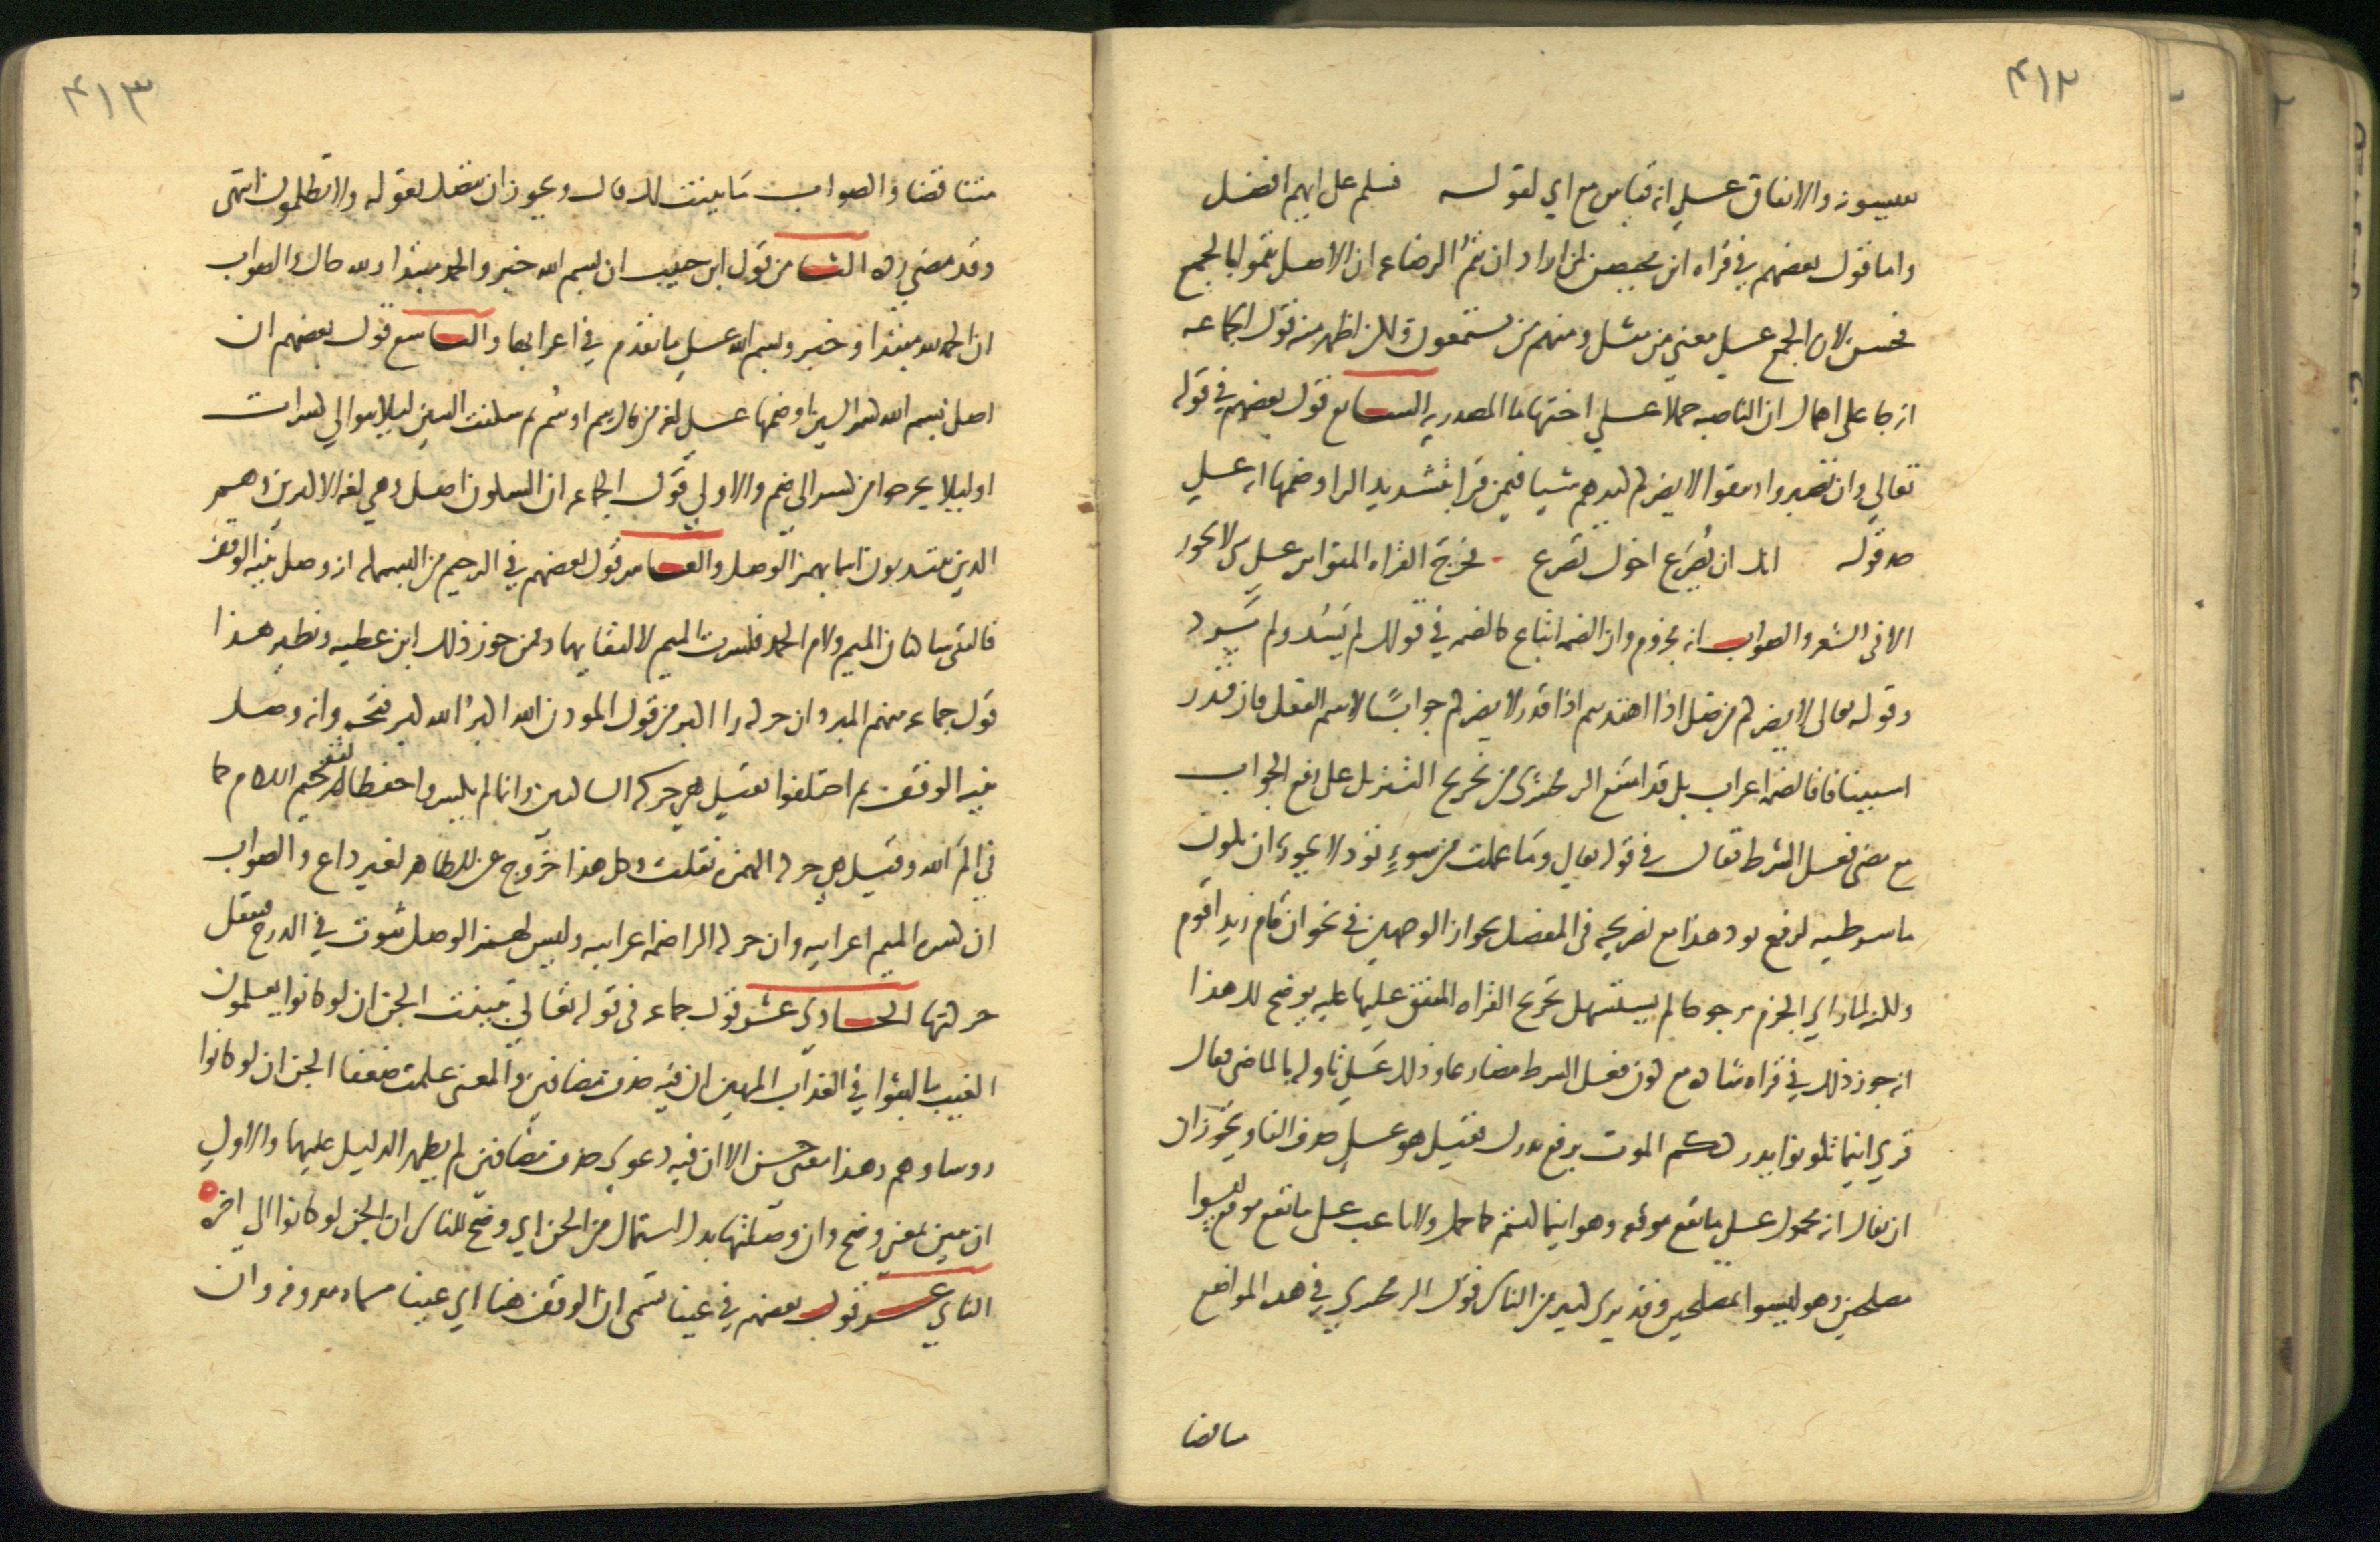 ٤١٢
سيبويه والاتفاق على انه قياس مع اي لقوله فسلم على ايهم افضل
واما قول بعضهم في قراه ابن محيصن لمن اراد ان يتم الرضاعه ان الاصل يتموا بالجمع
فحسن لان الجمع على معنى من مثل ومنهم من يستمعون ولكن اظهر منه قول الجماعه
انه جا على اهمال ان الناصبه حملا على اختها ما المصدريه السابع قول بعضهم في قوله
تعالى وان تصبروا وتتقوا لا يضركم كيدهم شيا فيمن قرا بتشديد الرا وضمها انه على
حد قوله انك ان يصرع اخوك تصرع فخرج القراه المتواتره على شي لا يجوز
الا في الشعر والصواب انه مجزوم وان الضمه اتباع كالضمه في قولك لم يشد ولم يرد
وقوله تعالى لا يضركم من ضل اذا اهتديتم اذا قدر لا يضركم جوابا لاسم الفعل فان قدر
استينافا فالضمه اعراب بل قد امتنع الزمخشري من تخريج التنزيل على رفع الجواب
مع مضي فعل الشرط فقال في قوله تعالى وما عملت من سوء تود لا يجوز ان تكون
ما شرطيه لرفع تود هذا مع تصريحه في المفصل بجواز الوجهين في نحو ان قام زيد اقوم
ولكنه لما راى الجزم مرجوحا لم يستسهل تخريج القراه المتفق عليها عليه يوضح لك هذا
انه جوز ذلك في قراه شاذه مع كون فعل الشرط مضارعا وذلك على تاوله بالماضي فقال
قري اينما تكونوا يدرككم الموت برفع يدرك فقيل هو على حذف الفا ويجوز ان
ان يقال انه محمول على ما يقع موقعه وهو اينما كنتم كما حمل ولا ناعب على ما يقع موقع ليسوا
مصلحين وهو ليسوا بمصلحين وقد يرى كثير من الناس قول الزمخشري في هذه المواضع
متناقضا
٤١٣
متناقضا والصواب ما بينت لك قال ويجوز ان يتصل بقوله ولا تظلمون انتهى
وقد مضى رده الثامن قول ابن حبيب ان بسم الله خبر والحمد مبتدا ولله حال والصواب
ان الحمد لله مبتدا وخبر وبسم الله على ما تقدم في اعرابها والتاسع قول بعضهم ان
اصل بسم الله كسر السين او ضمها على لغه من قال سم او سُم ثم سكنت السين ليلا يتوالى كسرات
او ليلا يخرجوا من كسر الى ضم والاولى قول الجماعه ان السكون اصل وهي لغه الاكثرين وهم
الذين يبتديون اسما بهمز الوصل والعاشر قول بعضهم في الرحيم من البسمله انه وصل بنيه الوقف
فالتقى ساكنان الميم ولام الحمد فكسرت الميم لالتقايهما وممن جوز ذلك ابن عطيه ونظير هذا
قول جماعه منهم المبرد ان حركه را اكبر من قول الموذن الله اكبر الله اكبر فتحه وانه وصل
بنيه الوقف ثم اختلفوا فقيل هي حركه الساكنين وانما لم يكسروا حفظا لتفخيم اللام كما
في الم الله وقيل هي حركه الهمزه نقلت وكل هذا خروج عن الظاهر لغير داع والصواب
ان كسره الميم اعرابيه وان حركه الرا ضمه اعرابيه وليس لهمز الوصل ثبوت في الدرج فتنقل
حركتها الحادي عشر قول جماعه في قوله تعالى تبينت الجن ان لو كانوا يعلمون
الغيب ما لبثوا في العذاب المهين ان فيه حذف مضافين والمعنى علمت ضعفا الجن ان لو كانوا
روساوهم وهذا معنى حسن الا ان فيه دعوى حذف مضافين لم يظهر الدليل عليهما والاولى
ان تبين بمعنى وضح وان وصلتها بدل اشتمال من الجن اي وضح للناس ان الجن لو كانوا الى اخره
الثاني عشر قول بعضهم في عينا تسمى ان الوقف هنا اي عينا مسماه معروفه وان